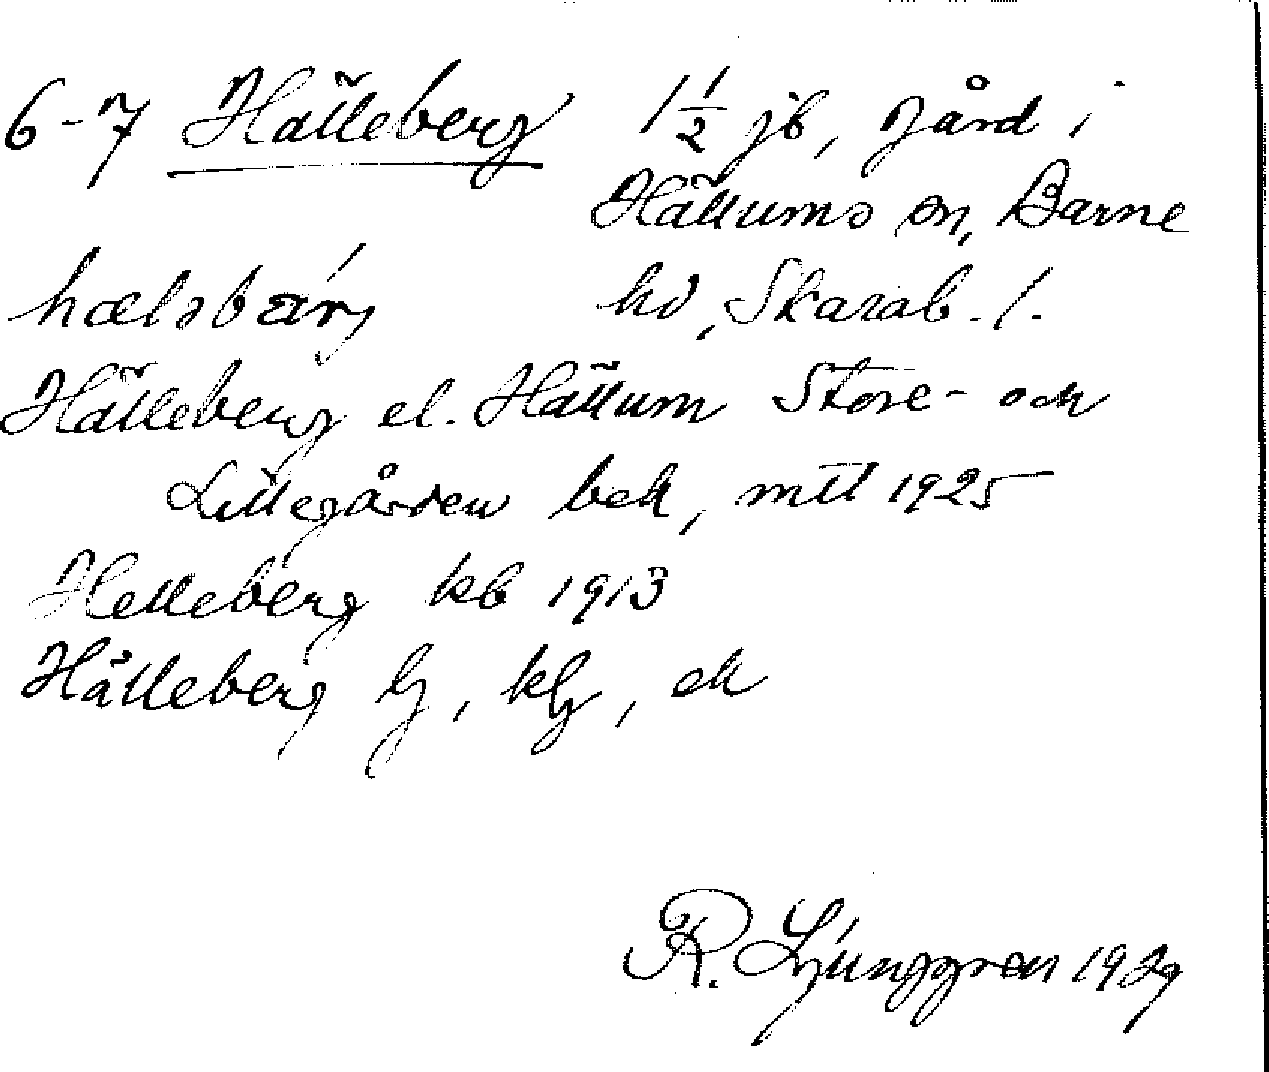 6-7 Hälleberg 1 1/2 jb, gård i
Hällums sn, Barne
hælsbærj hd, Skarab. l.
Hälleberg el. Hällum Store- och
Lillegården bek, mtl 1925
Helleberg kb 1913
Hålleberg lj, klj, ek
R. Ljunggren 1929